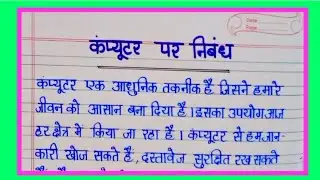 Date
Page
कंप्यूटर पर निबंध
कंप्यूटर एक आधुनिक तकनीक है जिसने हमारे
जीवन को आसान बना दिया है। इसका उपयोग आज
हर क्षेत्र में किया जा रहा है। कंप्यूटर से हम जान-
कारी खोज सकते हैं, दस्तावेज सुरक्षित रख सकते